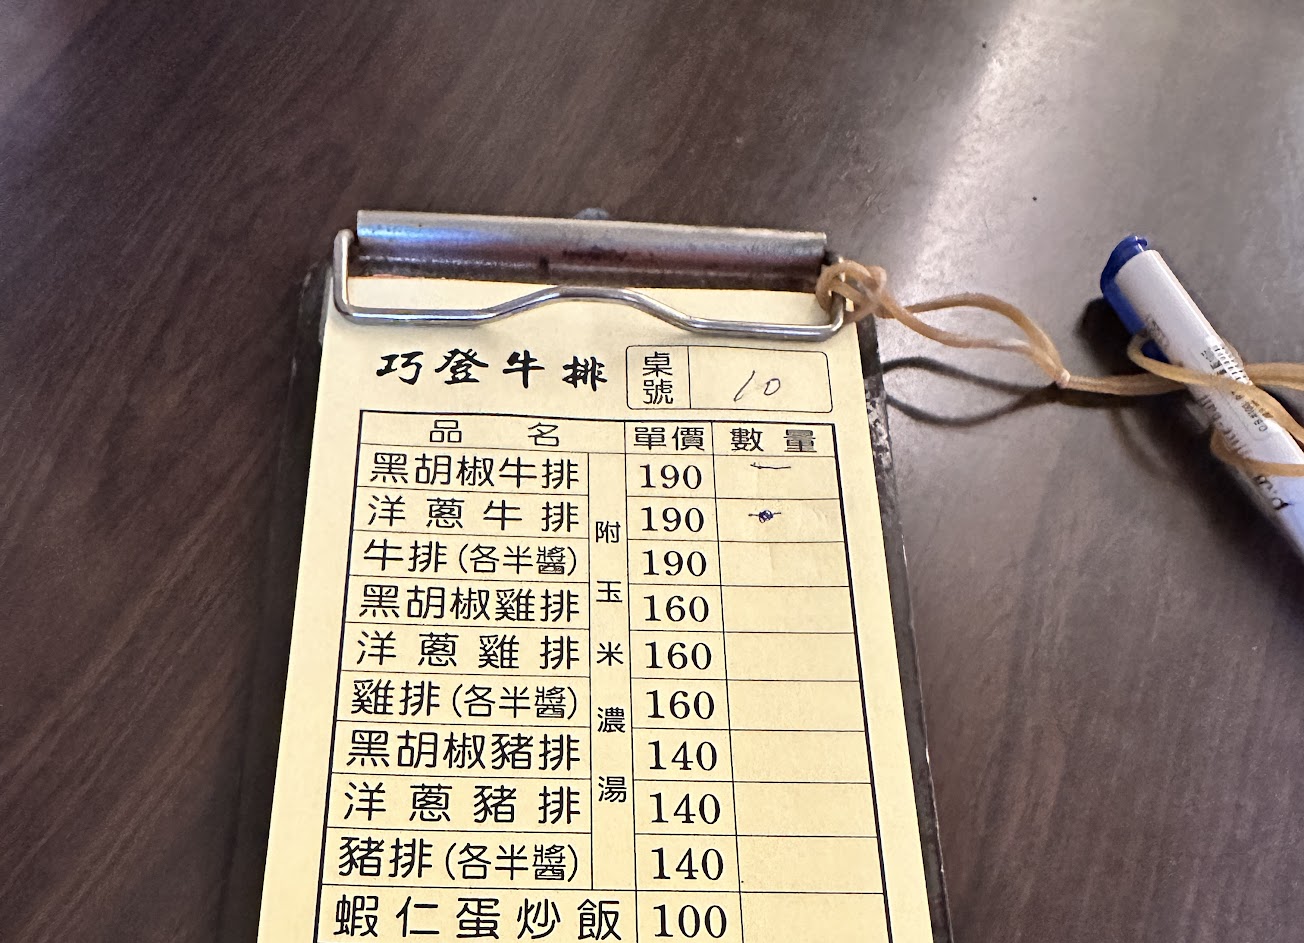 巧登牛排 桌號 10
品名 單價 數量
黑胡椒牛排 190 一
洋蔥牛排 190
牛排(各半醬) 190
黑胡椒雞排 160
洋蔥雞排 160
雞排(各半醬) 160
黑胡椒豬排 140
洋蔥豬排 140
豬排(各半醬) 140
附玉米濃湯
蝦仁蛋炒飯 100